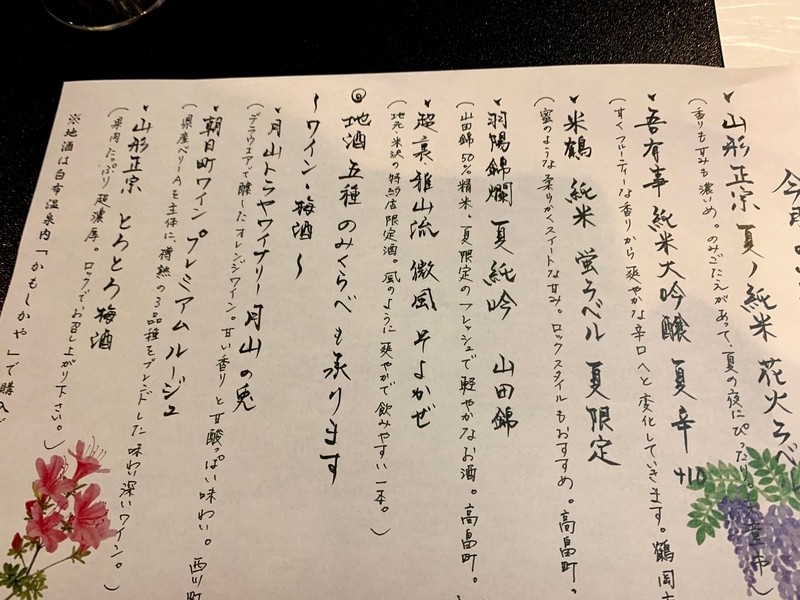 今宵の
♥山形正宗 夏ノ純米 花火ラベル
(香りも甘みも濃いめ。のみごたえがあって、夏の夜にぴったり。天童市)
♥吾有事 純米大吟醸 夏辛 +10
(甘くフルーティーな香りから爽やかな辛口へと変化していきます。鶴岡
♥米鶴 純米 蛍ラベル 夏限定
(蜜のような柔らかくスイートな甘み。ロックスタイルもおすすめ。高畠町。
♥羽陽錦爛 夏純吟 山田錦
(山田錦50%精米、夏限定のフレッシュで軽やかなお酒。高畠町。)
♥超裏・雅山流 微風 そよかぜ
(地元・米沢の特約店限定酒。風のように爽やかで飲みやすい一本。)
◎地酒五種 のみくらべも承ります
〜ワイン・梅酒〜
・月山トラヤワイナリー 月山の兎
(デラウエアで醸したオレンジワイン。甘い香りと甘酸っぱい味わい。西川町
♥朝日町ワイン プレミアムルージュ
(県産ベリーAを主体に、樽熟の3品種をブレンドした味わい深いワイン。)
♥山形正宗 とろとろ梅酒
(果肉たっぷり超濃厚。ロックでお召し上がり下さい。)
※地酒は白布温泉内「かもしかや」で購入